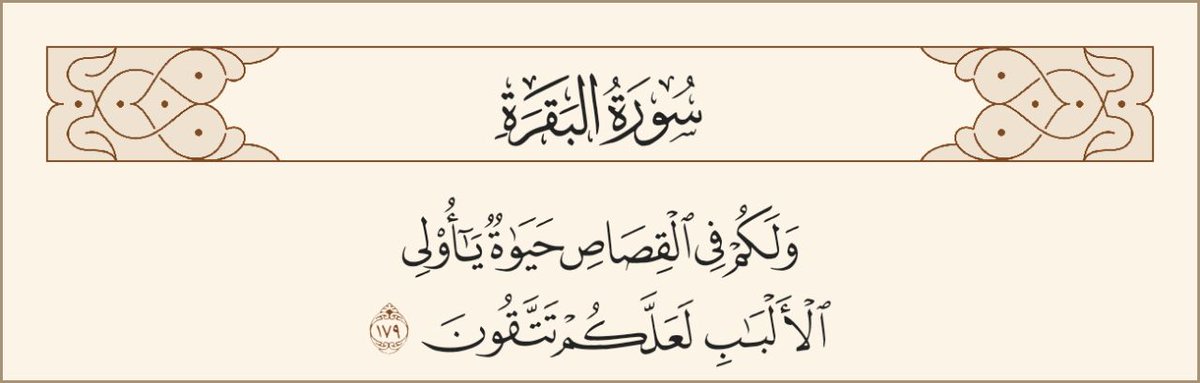 سُورَةُ البَقَرَةِ
وَلَكُمۡ فِي ٱلۡقِصَاصِ حَيَوٰةٞ يَـٰٓأُوْلِي
ٱلۡأَلۡبَـٰبِ لَعَلَّكُمۡ تَتَّقُونَ ١٧٩